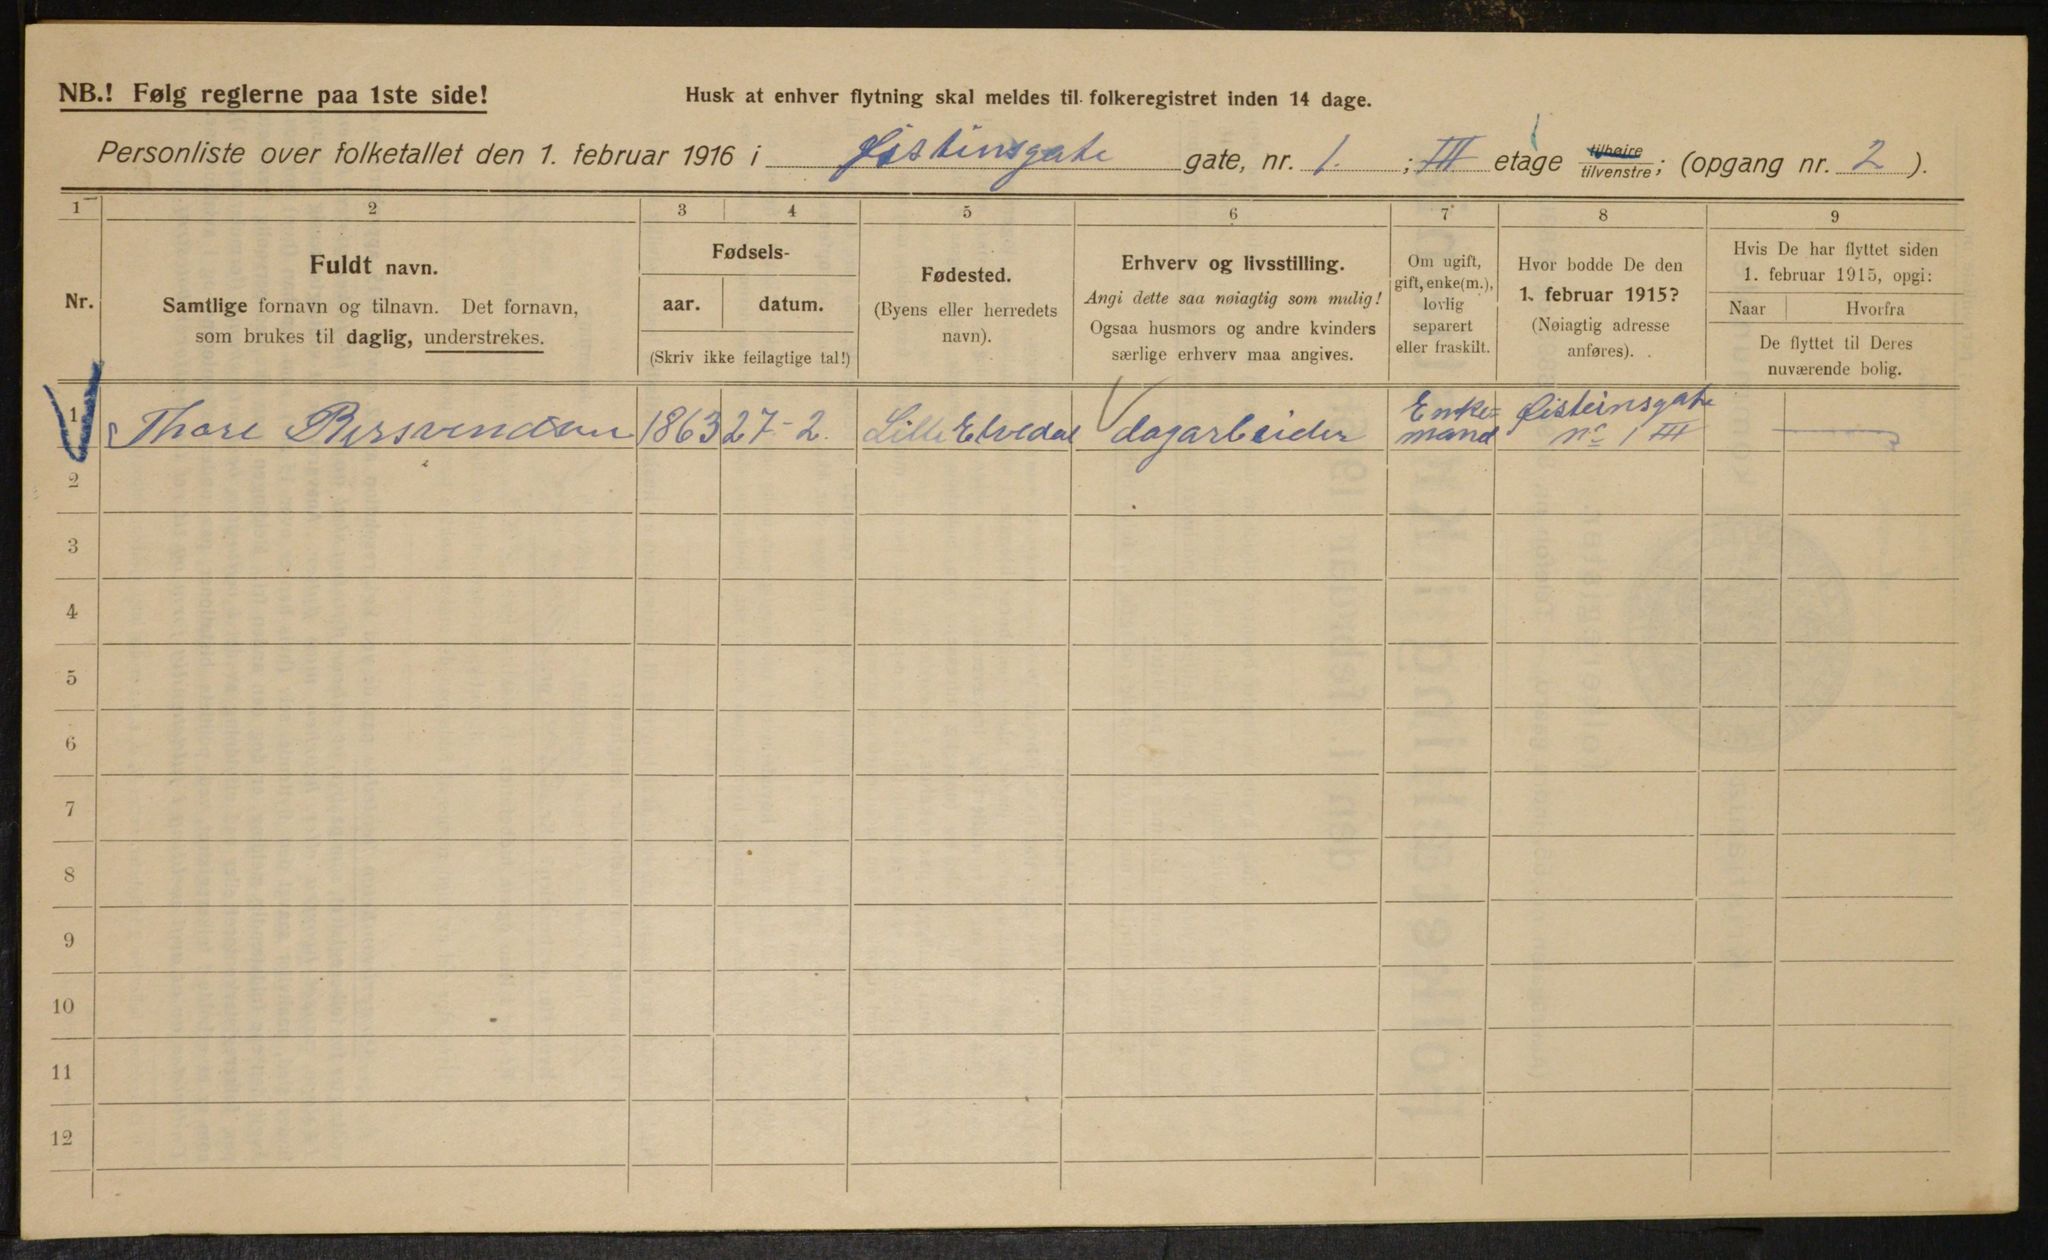 NB.! Følg reglerne paa 1ste side!
Husk at enhver flytning skal meldes til folkeregistret inden 14 dage.
Personliste over folketallet den 1. februar 1916 i Øisteinsgate gate, nr. 1. ; III etage tilhøire tilvenstre; (opgang nr. 2).
1 2 3 4 5 6 7 8 9
Nr.
Fuldt navn.
Samtlige fornavn og tilnavn. Det fornavn,
som brukes til daglig, understrekes.
Fødsels-
aar. datum.
(Skriv ikke feilagtige tal!)
Fødested.
(Byens eller herredets
navn).
Erhverv og livsstilling.
Angi dette saa nøiagtig som mulig!
Ogsaa husmors og andre kvinders
særlige erhverv maa angives.
Om ugift,
gift, enke(m.),
lovlig
separert
eller fraskilt.
Hvor bodde De den
1. februar 1915?
(Nøiagtig adresse
anføres).
Hvis De har flyttet siden
1. februar 1915, opgi:
Naar Hvorfra
De flyttet til Deres
nuværende bolig.
1 Thore 1863 27-2. Lille Elvedal dagarbeider Enke- mand Øisteinsgate nr 1 III
2
3
4
5
6
7
8
9
10
11
12